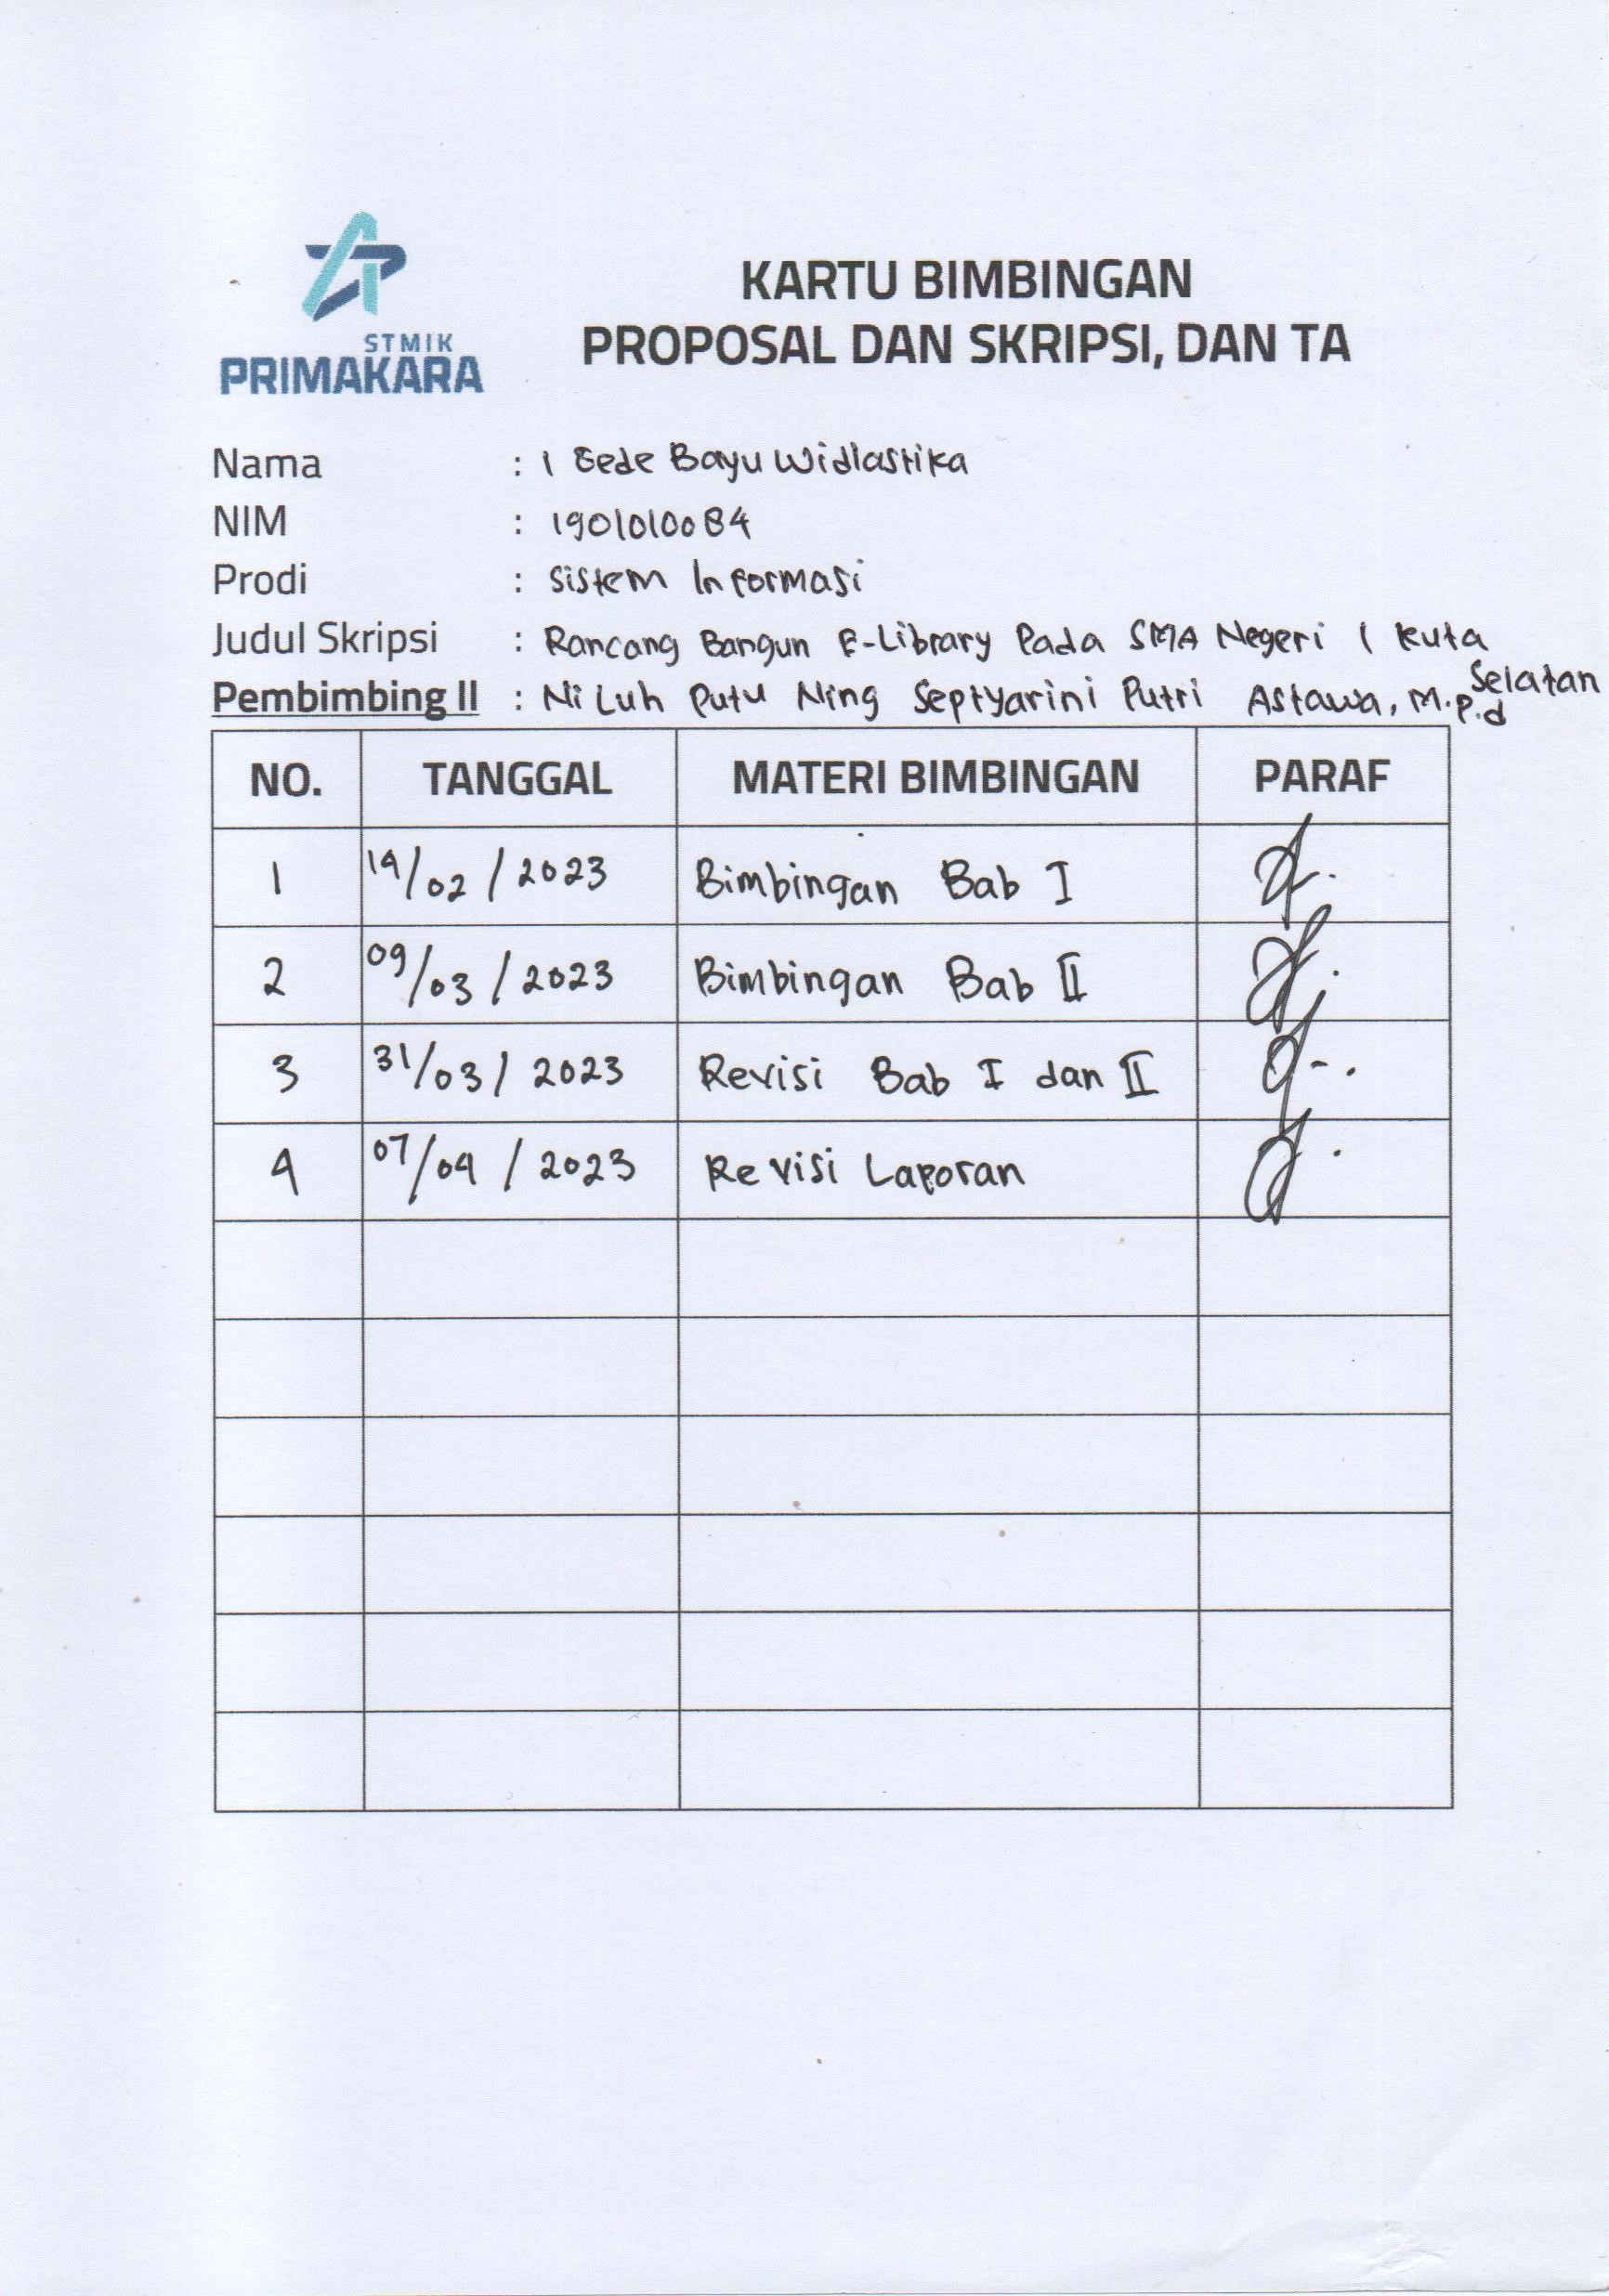 STMIK
PRIMAKARA
KARTU BIMBINGAN
PROPOSAL DAN SKRIPSI, DAN TA
Nama : I Gede Bayu Widiastika
NIM : 1901010084
Prodi : Sistem Informasi
Judul Skripsi : Rancang Bangun E-Library Pada SMA Negeri 1 Kuta Selatan
Pembimbing II : Ni Luh Putu Ning Septyarini Putri Astawa, M.P.d
NO. TANGGAL MATERI BIMBINGAN PARAF
1 14/02/2023 Bimbingan Bab I
2 09/03/2023 Bimbingan Bab II
3 31/03/2023 Revisi Bab I dan II
4 07/04/2023 Revisi Laporan